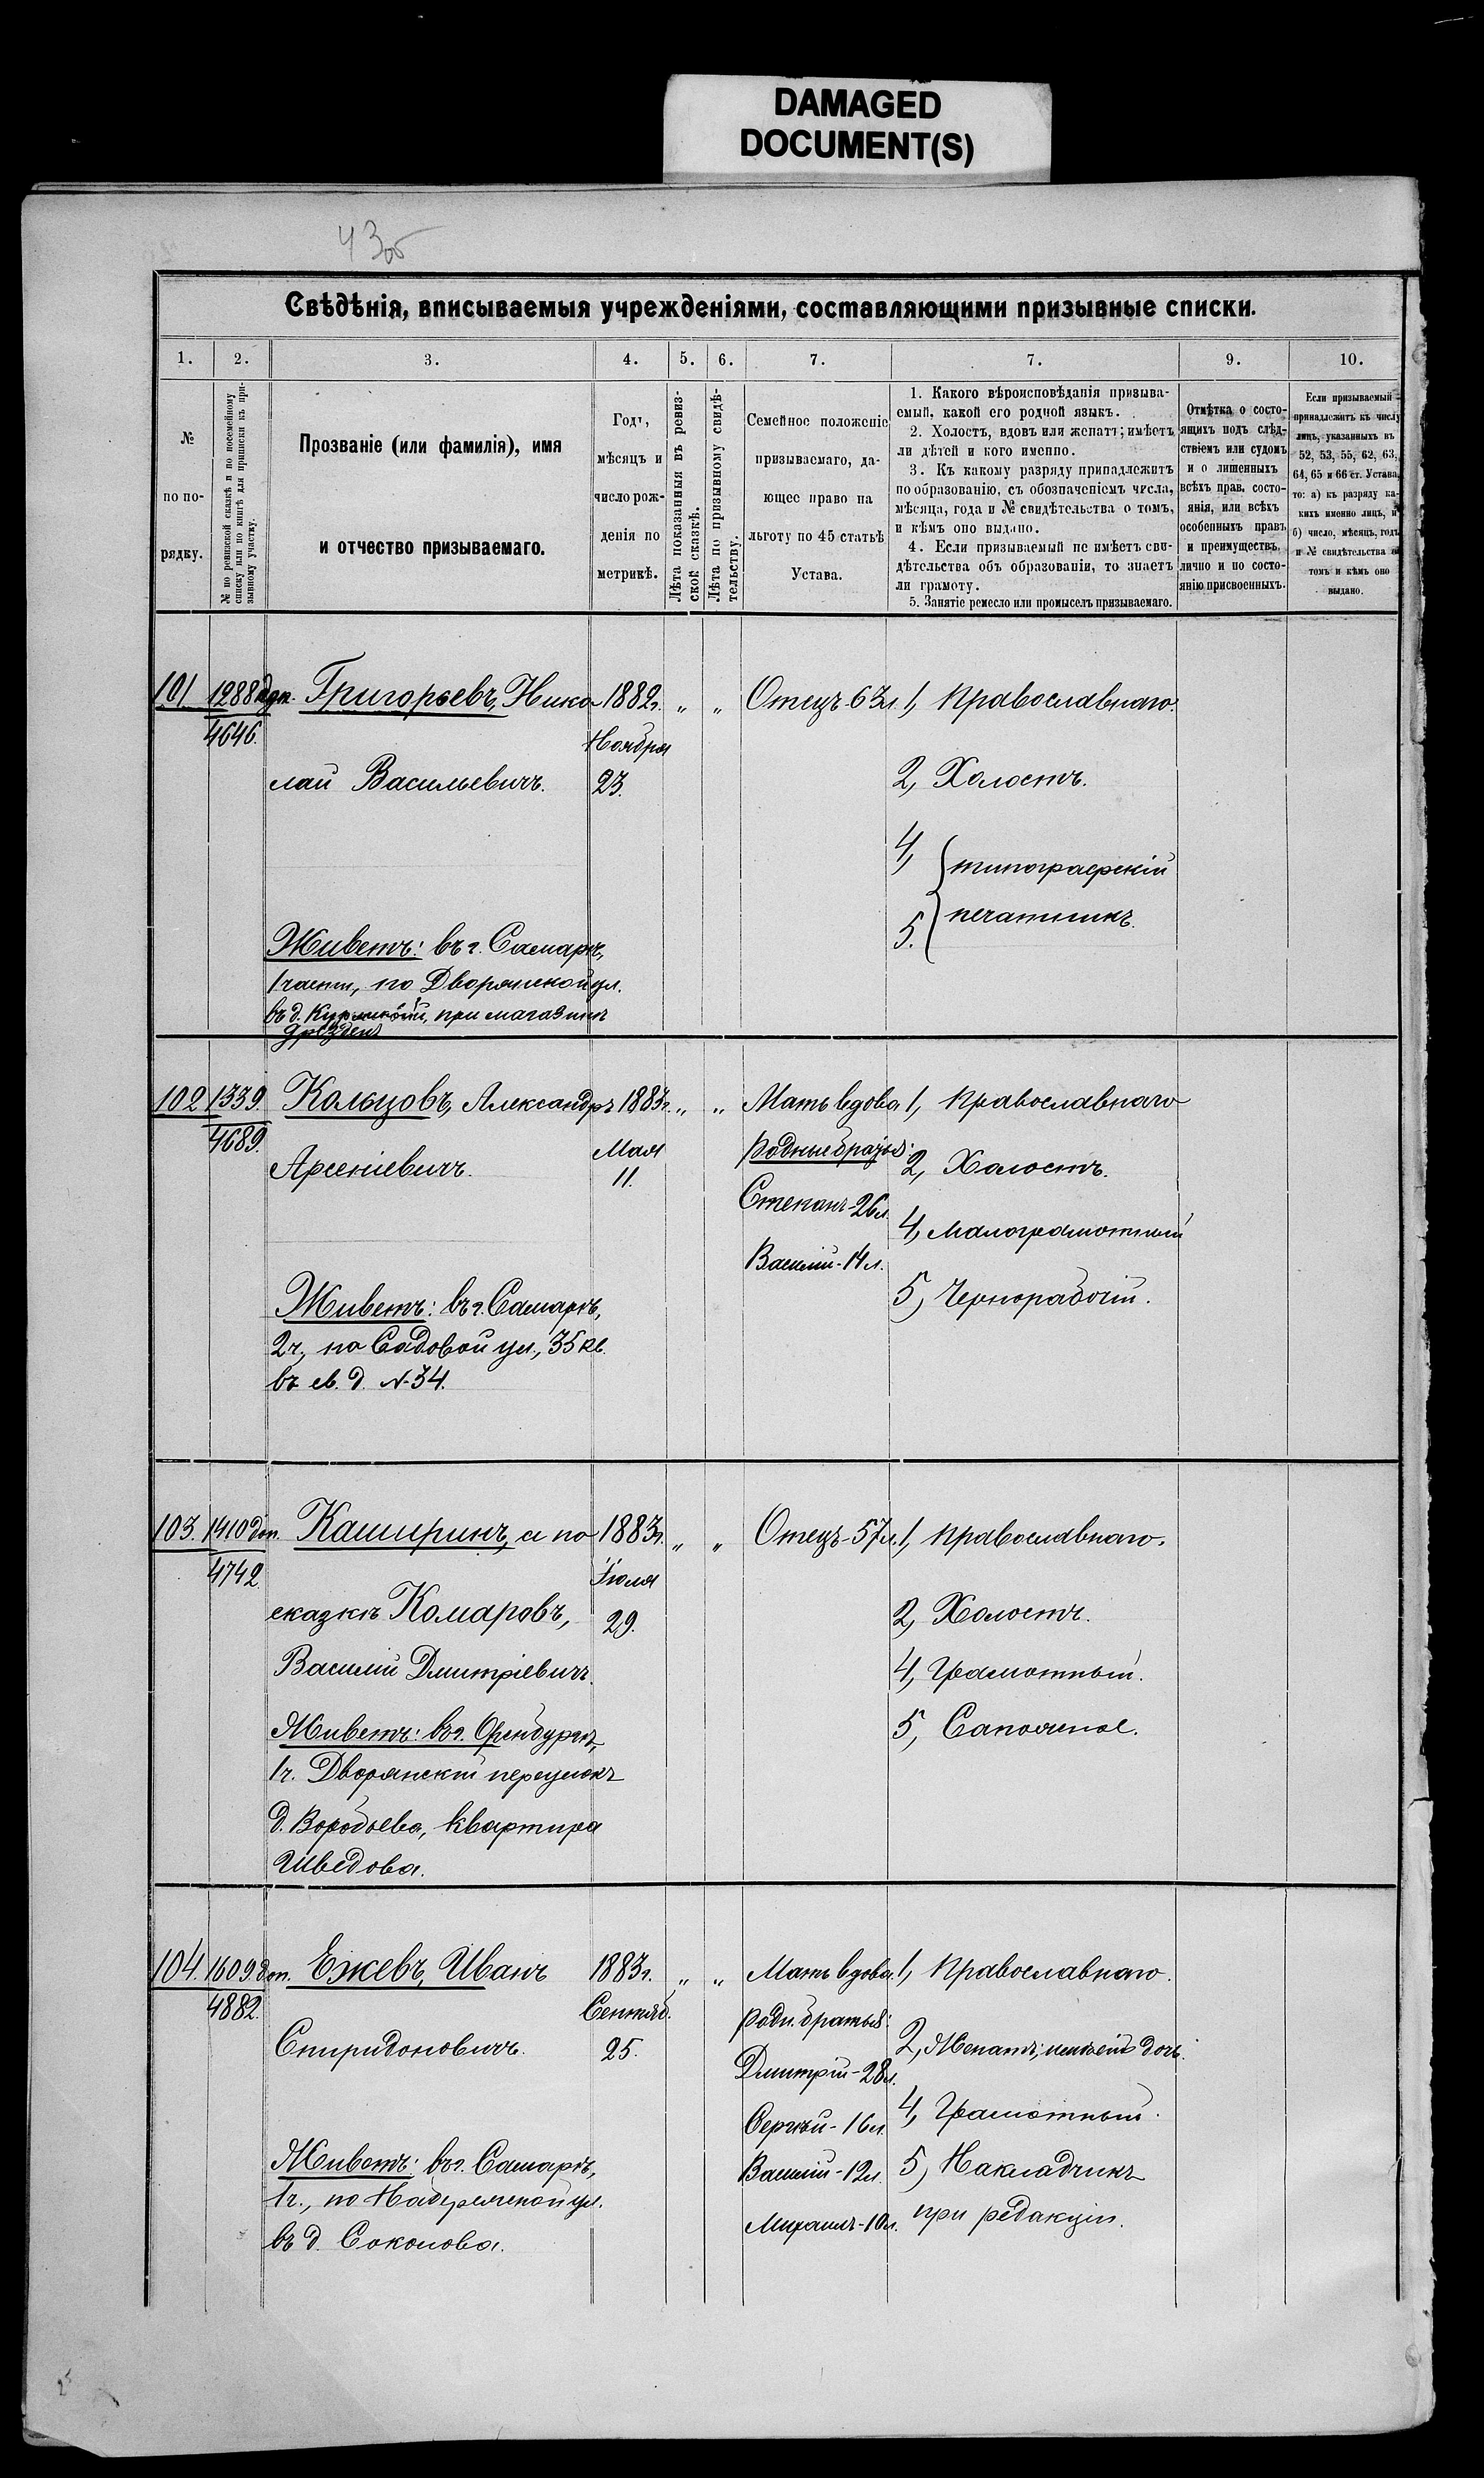 DAMAGED
DOCUMENT(S)
43об
Свѣдѣнія, вписываемыя учрежденіями, составляющими призывные списки.
1.
2.
3.
4.
5.
6.
7.
7.
9.
10.
№
по по-
рядку.
№ по ревизской сказкѣ и по посемейному
списку или по книгѣ для приписки къ при-
зывному участку.
Прозваніе (или фамилія), имя
и отчество призываемаго.
Годъ,
мѣсяцъ и
число рож-
денія по
метрикѣ.
Лѣта показанныя въ ревиз-
ской сказкѣ.
Лѣта по призывному свидѣ-
тельству.
Семейное положеніе
призываемаго, да-
ющее право на
льготу по 45 статьѣ
Устава.
1. Какого вѣроисповѣданія призыва-
емый, какой его родной языкъ.
2. Холостъ, вдовъ или женатъ; имѣетъ
ли дѣтей и кого именно.
3. Къ какому разряду принадлежитъ
по образованію, съ обозначеніемъ числа,
мѣсяца, года и № свидѣтельства о томъ,
и кѣмъ оно выдано.
4. Если призываемый не имѣетъ сви-
дѣтельства объ образованіи, то знаетъ
ли грамоту.
5. Занятіе ремесло или промыселъ призываемаго.
Отмѣтка о состо-
ящихъ подъ слѣд-
ствіемъ или судомъ
и о лишенныхъ
всѣхъ прав. состо-
янія, или всѣхъ
особенныхъ правъ
и преимуществъ,
лично и по состо-
янію присвоенныхъ.
Если призываемый
принадлежитъ къ числу
лицъ, указанныхъ въ
52, 53, 55, 62, 63,
64, 65 и 66 ст. Устава,
то: а) къ разряду ка-
кихъ именно лицъ, и
б) число, мѣсяцъ, годъ
и № свидѣтельства о
томъ и кѣмъ оно
выдано.
101 1288 доп. Григорьевъ, Нико 1882г. " " Отецъ-63л. 1, Православнаго.
4646. Ноября
лай Васильевичъ. 23. 2, Холостъ.
4, типографскій
5. печатникъ.
Живетъ: въ г. Самарѣ,
1 части, по Дворянской ул.
въ д. Курлиной, при магазинѣ
Дрезденъ
102 1339. Кольцовъ, Александръ 1883г. " " Мать вдова 1, Православнаго
4689. Мая родные братья:
Арсеніевичъ. 11. 2, Холостъ.
Степанъ-26л.
4, Малограмотный
Василій-14л.
5, Чернорабочій.
Живетъ: въ г. Самарѣ,
2ч., по Садовой ул., 35 кв.
въ св. д. №34.
103. 1410 доп. Каширинъ, а по 1883г. " " Отецъ-57л. 1, Православнаго.
4742 Іюля
сказкѣ Комаровъ, 29. 2, Холостъ.
Василій Дмитріевичъ. 4, Грамотный.
Живетъ: въ г. Оренбургѣ, 5, Сапожное.
1ч. Дворянскій переулокъ
д. Воробьева, квартира
Шведова.
104. 1609 доп. Ежевъ, Иванъ 1883г. " " Мать вдова. 1, Православнаго.
4882. Сентяб. родн. братья:
Спиридоновичъ. 25. 2, Женатъ; имѣетъ дочь.
Дмитрій-28л.
4, Грамотный.
Сергѣй-16л.
Живетъ: въ г. Самарѣ, Василій-12л. 5, Накладчикъ
1ч., по Набережной ул. Михаилъ-10л. при редакціи.
въ д. Соколова.